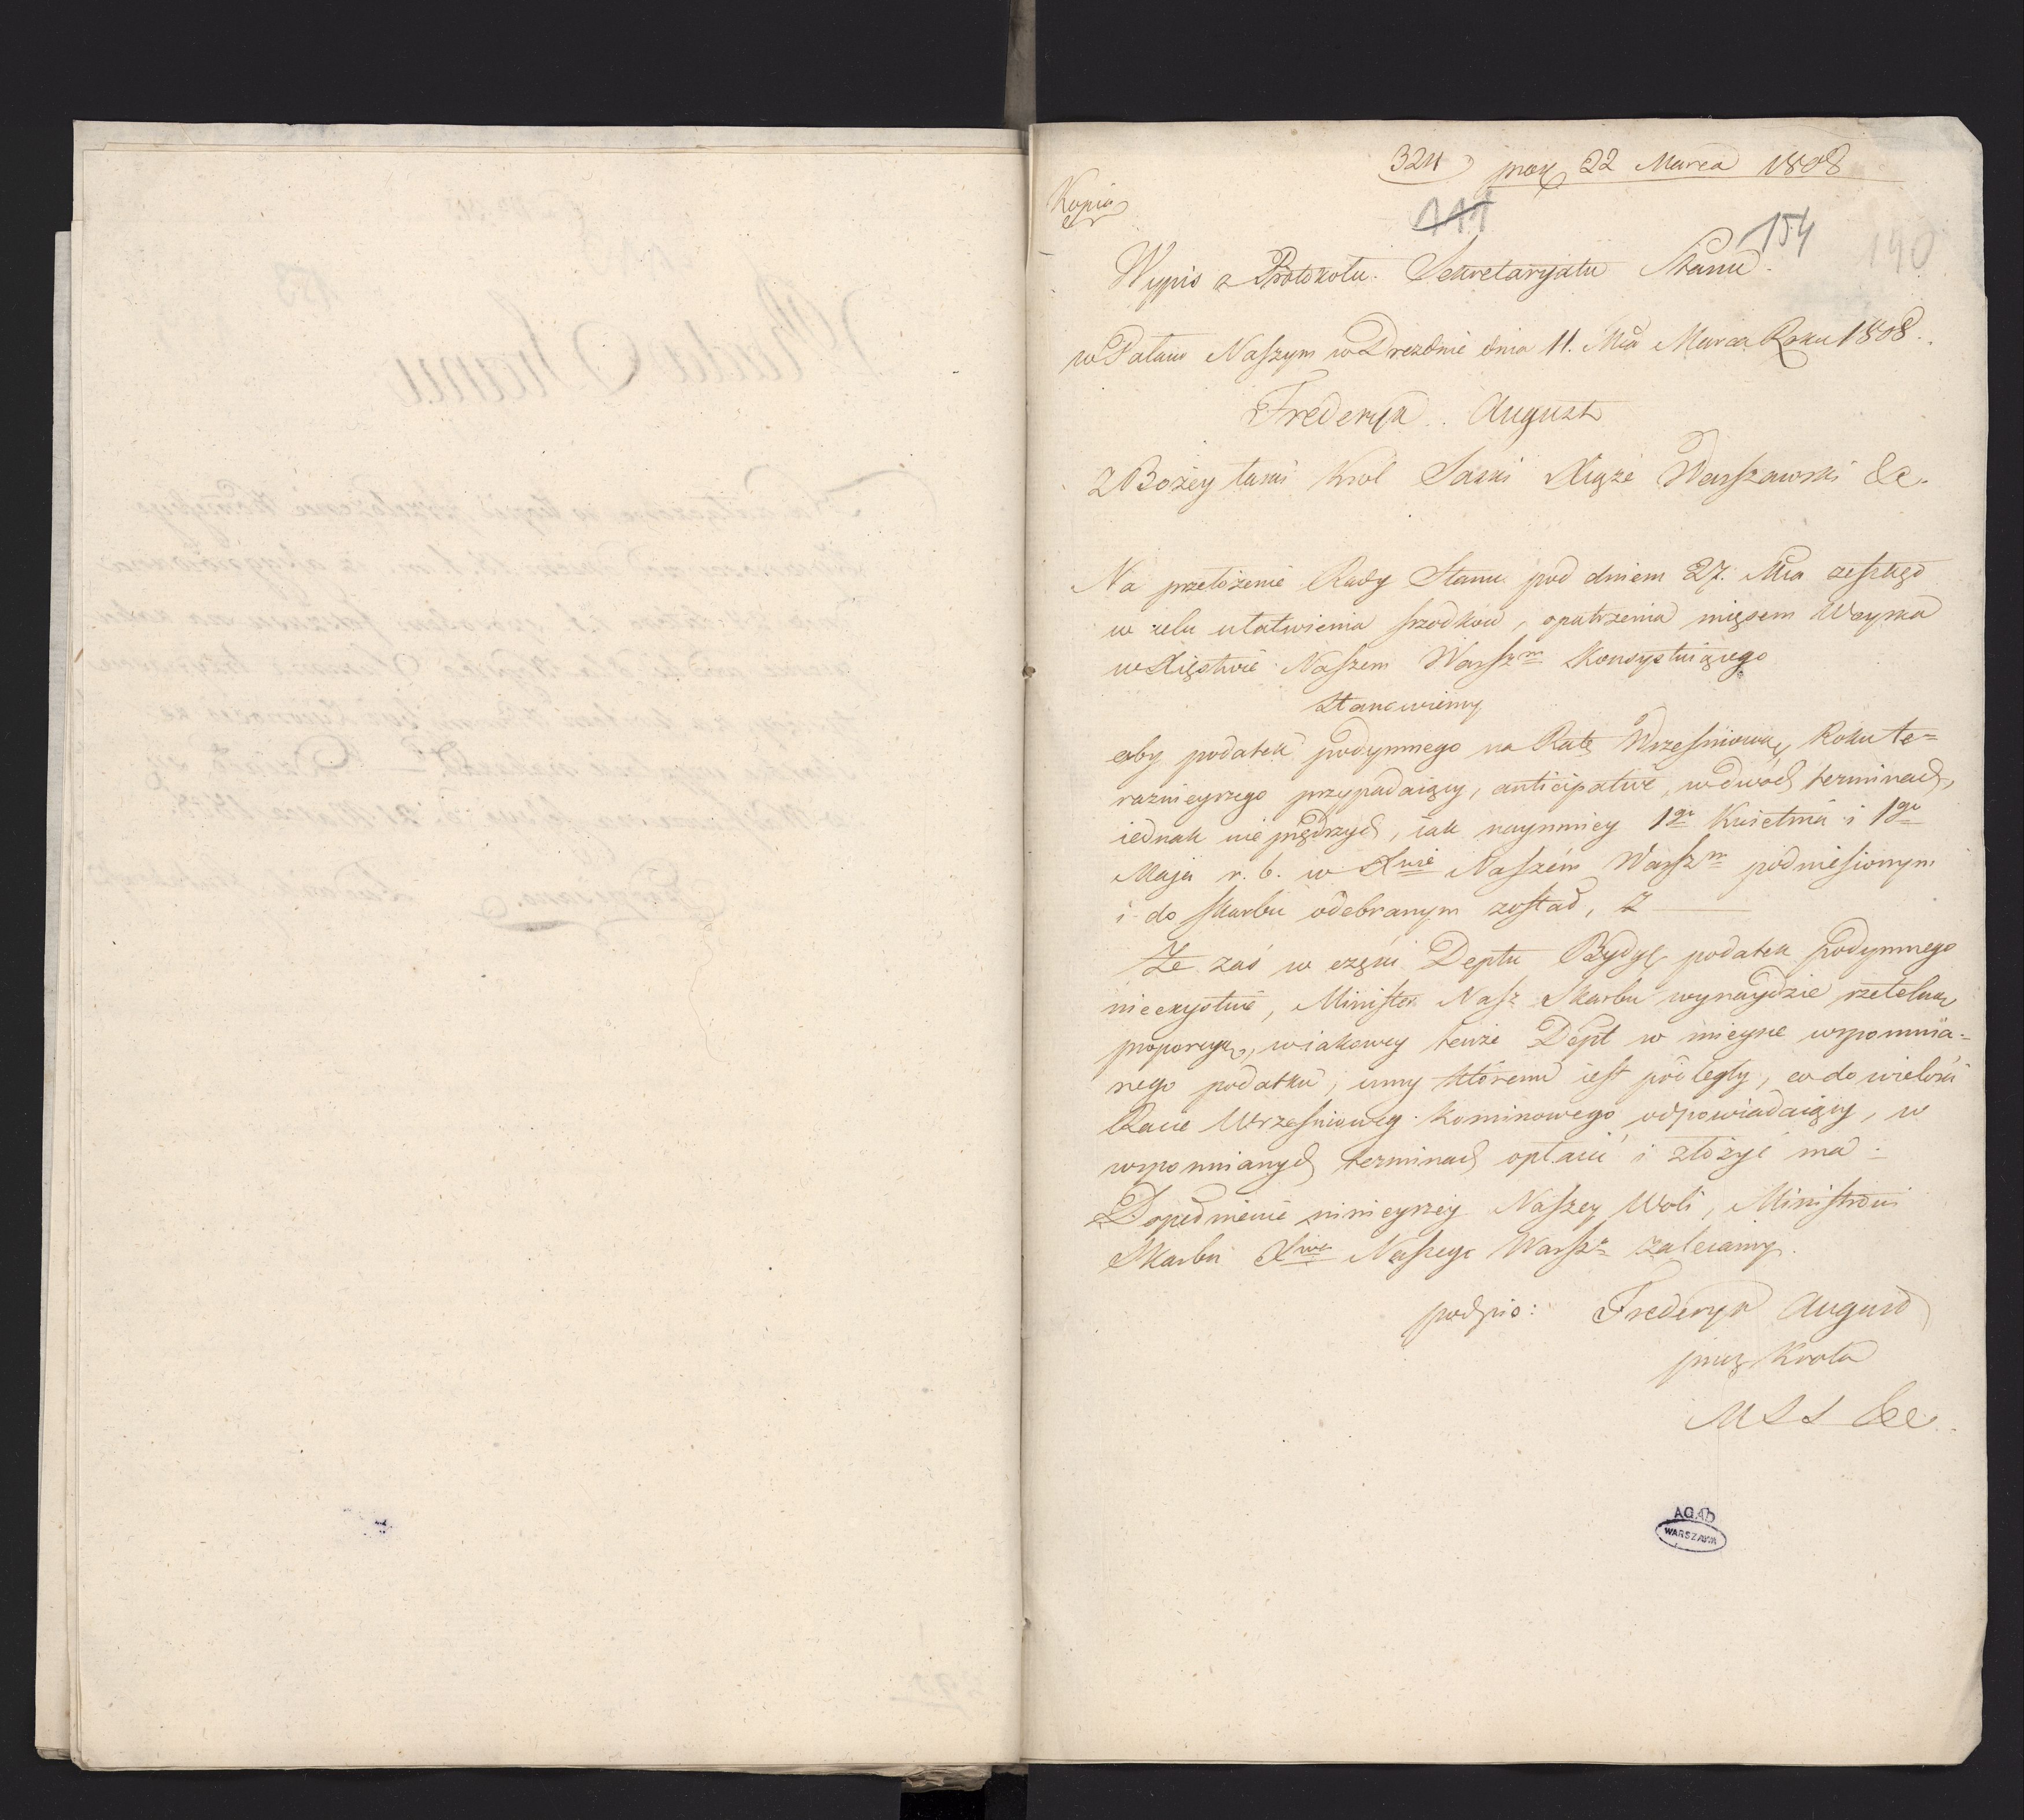 324) prae 22 Marca 1808
Kopia
111
154
190
Wypis z Protokołu Sekretaryatu Stanu.
w Pałacu Naszym w Dreźnie dnia 11. Mca Marca Roku 1808.
Frederyk August
z Bożey łaski Krol Saski Xiąże Warszawski &c.
Na przełożenie Rady Stanu pod dniem 27. Mca zeszłego
w celu ułatwienia srzodkow, opatrzenia mięsem Woyska
w Xięstwie Naszem Warszm Konsystuiącego
Stanowiemy
aby podatek podymnego na Ratę Wrzesniową Roku te=
raznieyszego przypadaiący, anticipative, w dwóch terminach,
iednak nie prędzych, iak naymniey 1go Kwietnia i 1go
Maja r. b. w Xwie Naszém Warszm podniesionym
i do skarbu odebranym został,
Że zaś w części Deptu Bydg podatek podymnego
nieexystuie, Minister Nasz Skarbu wynaydzie rzetelną
proporcyą, w iakowey tenże Dept w mieysce wspomnia=
nego podatku, inny któremu iest podległy, co do wielości
Racie Wrzesniowey kominowego odpowiadaiący, w
wspomnianych terminach opłacić i złożyć ma.
Dopełnienie ninieyszey Naszey Woli, Ministrowi
Skarbu Xtwa Naszego Warszo zalecamy.
podpis: Frederyk August
przez Krola
M S S &c
AGAD
WARSZAWA